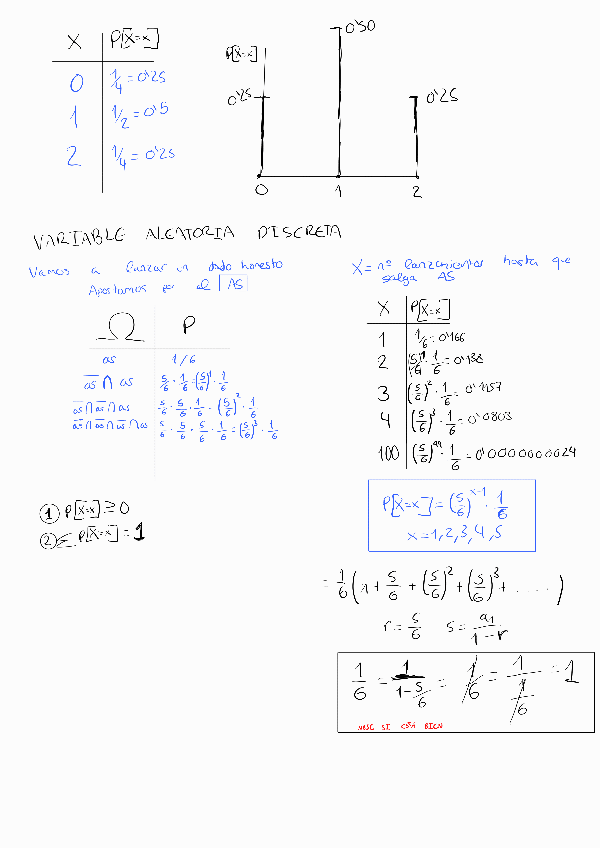 X P[X=x]
0 1/4 = 0'25
1 1/2 = 0'5
2 1/4 = 0'25
0'50
P[X=x]
0'25 0'25
0 1 2
VARIABLE ALEATORIA DISCRETA
Vamos a lanzar un dado honesto
Apostamos por el AS
Ω P
as 1/6
a̅s̅ ∩ as 5/6 · 1/6 = (5/6)¹ · 1/6
a̅s̅ ∩ a̅s̅ ∩ as 5/6 · 5/6 · 1/6 = (5/6)² · 1/6
a̅s̅ ∩ a̅s̅ ∩ a̅s̅ ∩ as 5/6 · 5/6 · 5/6 · 1/6 = (5/6)³ · 1/6
X = nº lanzamientos hasta que
salga AS
X P[X=x]
1 1/6 = 0'166
2 (5/6)¹ · 1/6 = 0'138
3 (5/6)² · 1/6 = 0'1157
4 (5/6)³ · 1/6 = 0'0803
100 (5/6)⁹⁹ · 1/6 = 0'0000000024
P[X=x] = (5/6)ˣ⁻¹ · 1/6
x = 1, 2, 3, 4, 5
① P[X=x] ≥ 0
② Σ P[X=x] = 1
= 1/6 (1 + 5/6 + (5/6)² + (5/6)³ + ....)
r = 5/6 s = a₁/1-r
1/6 = 1/(1-5/6) = 1/6 = 1/(1/6) = 1
NOSE SI ESTÁ BIEN